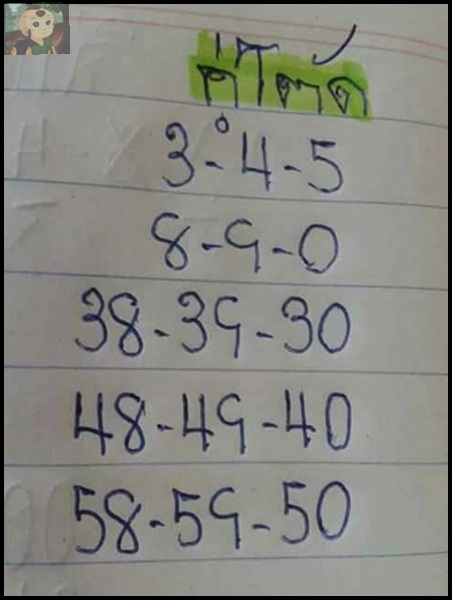 3-4-5
8-9-0
38-39-30
48-49-40
58-59-50